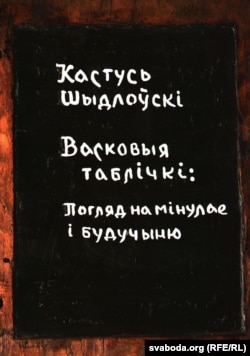 Кастусь
Шыдлоўскі
Васковыя
таблічкі:
Погляд на мінулае
і будучыню
svaboda.org (RFE/RL)